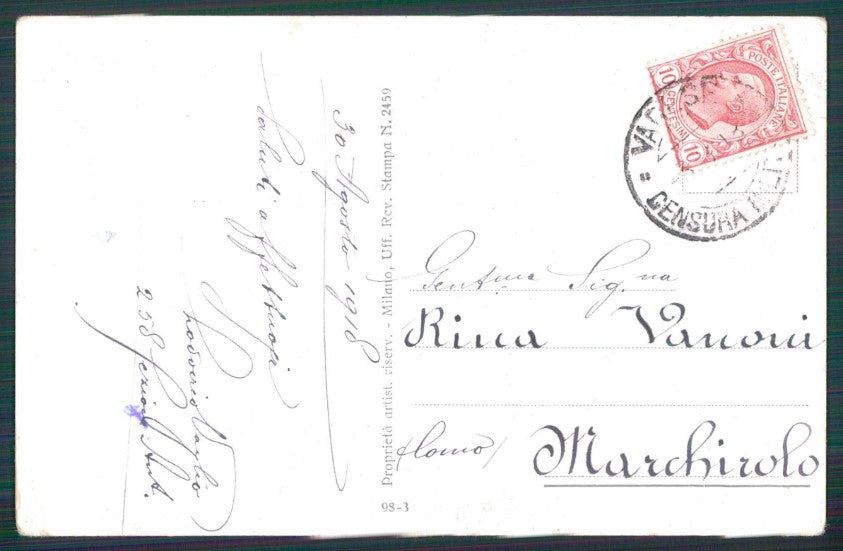 30 Agosto 1918
Saluti affettuosi
258 Sezione Aut.
Proprietà artist. riserv. - Milano, Uff. Rev. Stampa N. 2459
98-3
POSTE ITALIANE
10 CENTESIMI 10
CENSURA
Gent.ma Sig.na
Rina Vanoni
(Como) Marchirolo